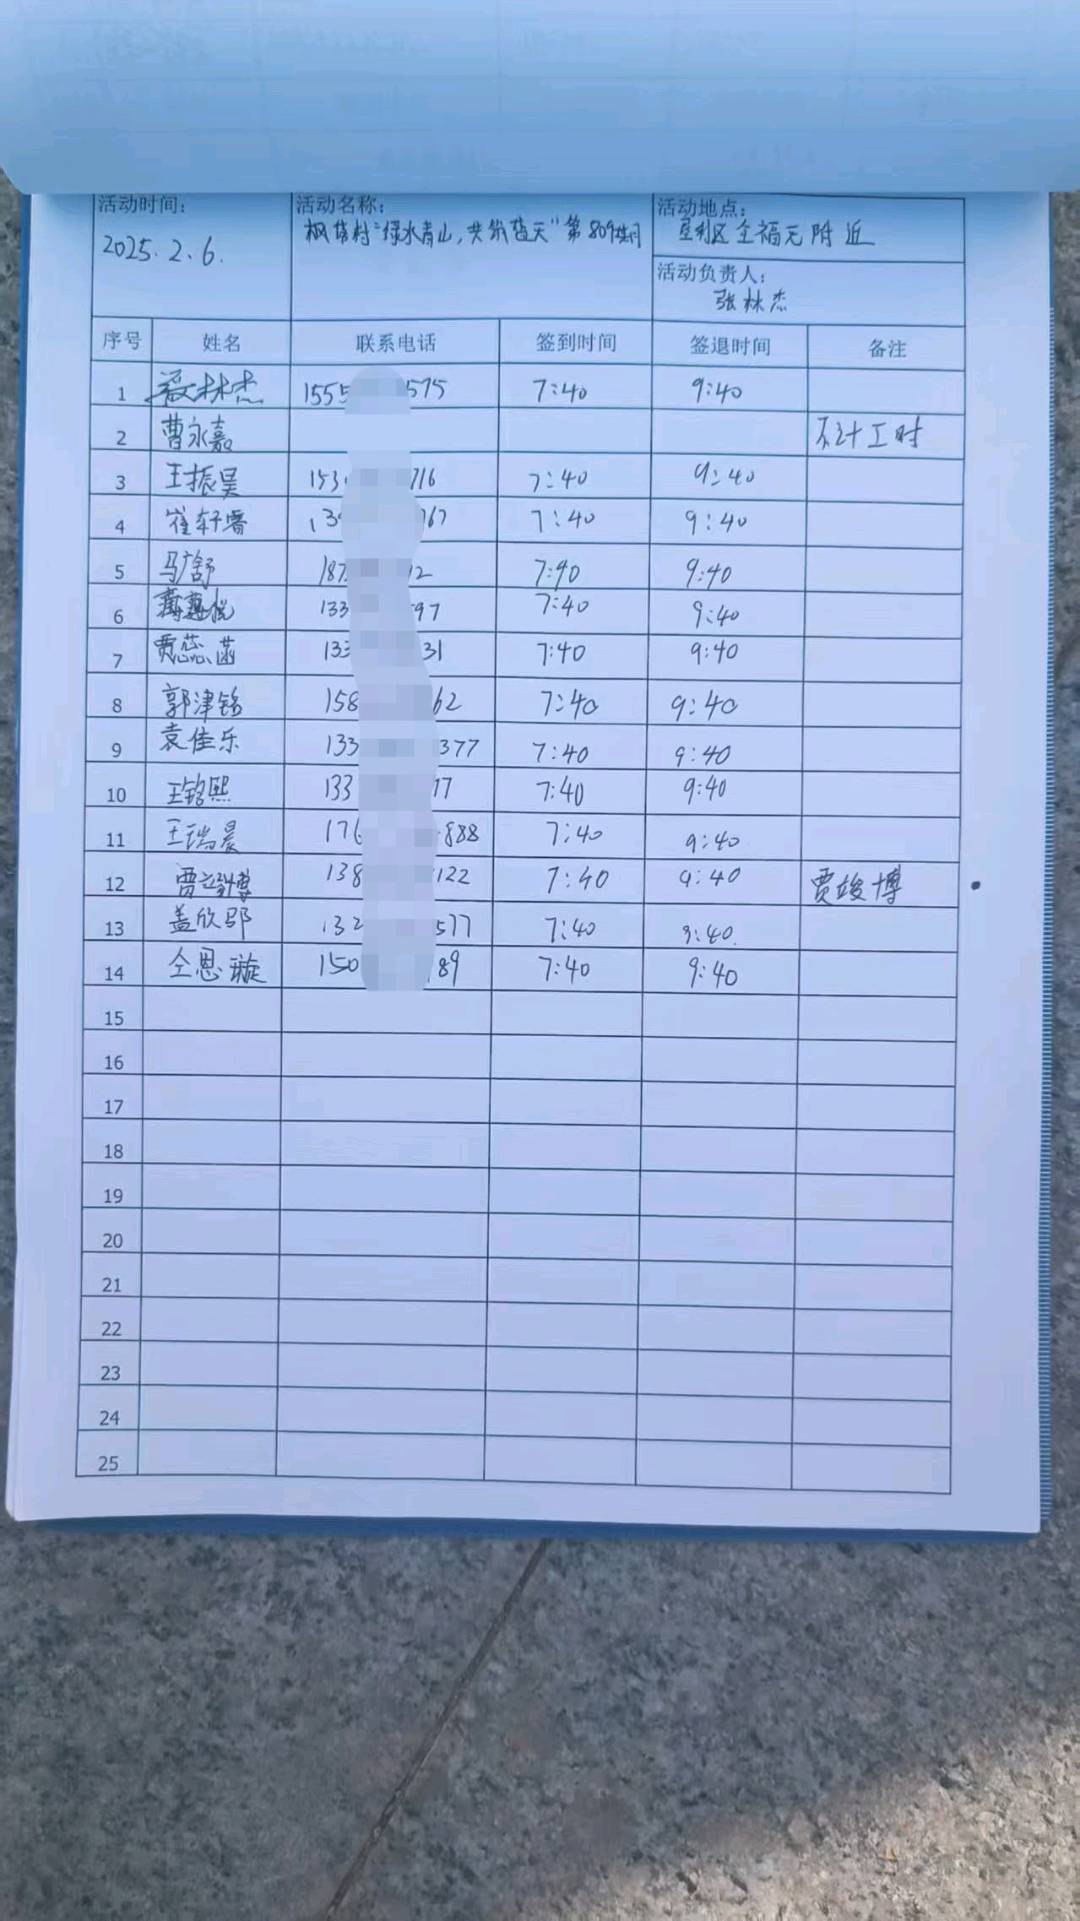 活动时间: 活动名称: 活动地点:
2025.2.6. "绿水青山,共筑蓝天"第809期 垦利区全福元附近
活动负责人:
张林杰
序号 姓名 联系电话 签到时间 签退时间 备注
1 林杰 1555 575 7:40 9:40
2 曹永嘉 不计工时
3 王振昊 153 716 7:40 9:40
4 崔轩睿 13 767 7:40 9:40
5 马舒 187 12 7:40 9:40
6 133 97 7:40 9:40
7 贾蕊菡 133 31 7:40 9:40
8 郭津铭 158 62 7:40 9:40
9 袁佳乐 133 377 7:40 9:40
10 王铭熙 133 77 7:40 9:40
11 王瑞晨 176 888 7:40 9:40
12 贾竣博 138 122 7:40 9:40 贾竣博
13 盖欣 132 577 7:40 9:40
14 仝恩璇 150 89 7:40 9:40
15
16
17
18
19
20
21
22
23
24
25